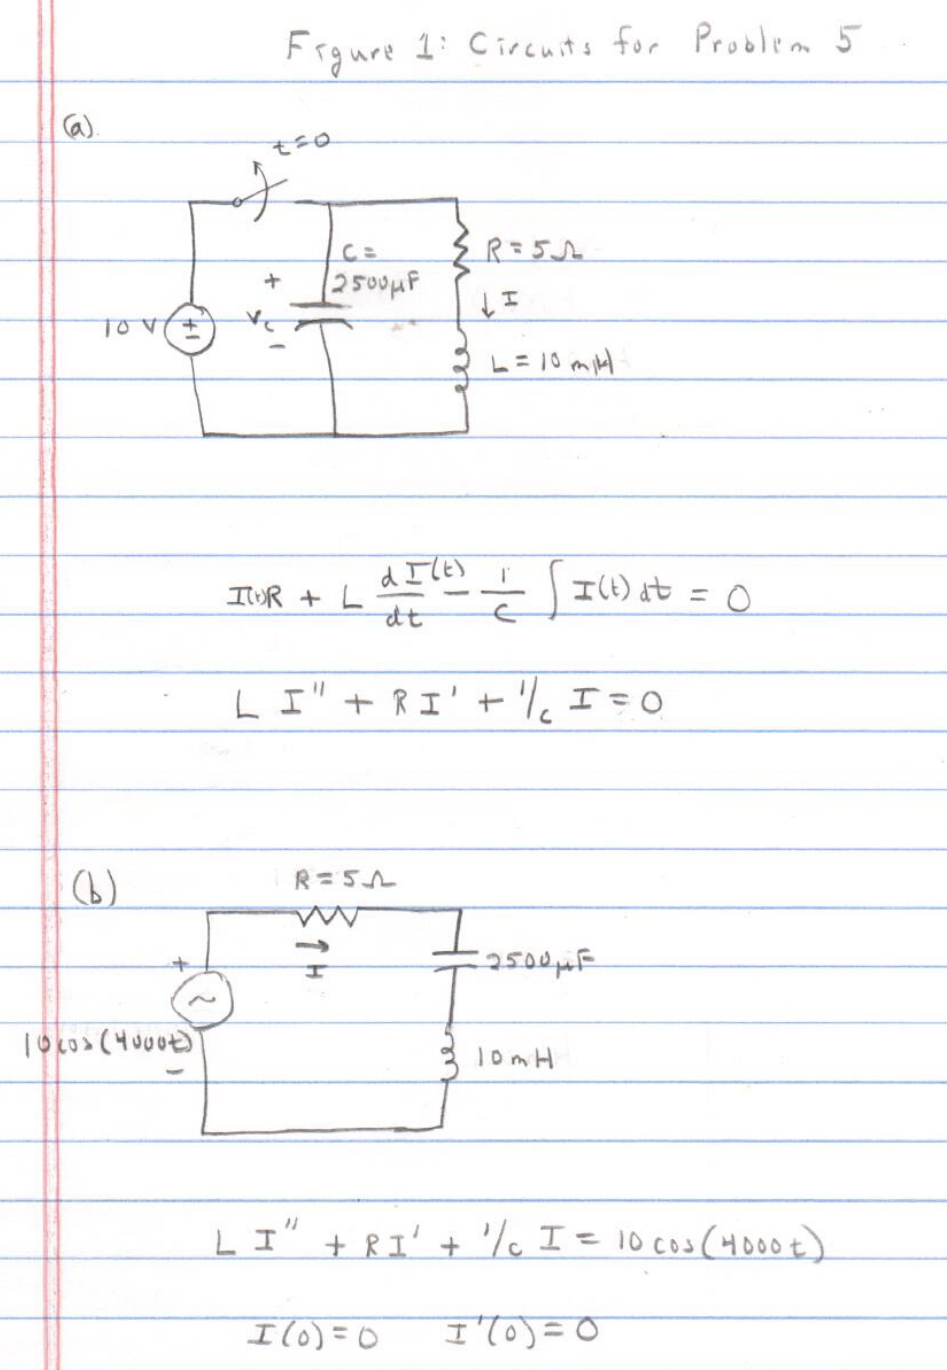 Figure 1: Circuits for Problem 5
(a)
t=0
C=
2500μF
R=5Ω
+
↓ I
10 V
+
−
Vc
−
L=10 mH
I(t)R + L dI(t)/dt − 1/C ∫ I(t) dt = 0
L I'' + R I' + 1/C I = 0
(b)
R=5Ω
→
I
+
2500μF
~
10cos(4000t)
−
10mH
L I'' + R I' + 1/C I = 10 cos(4000t)
I(0)=0 I'(0)=0